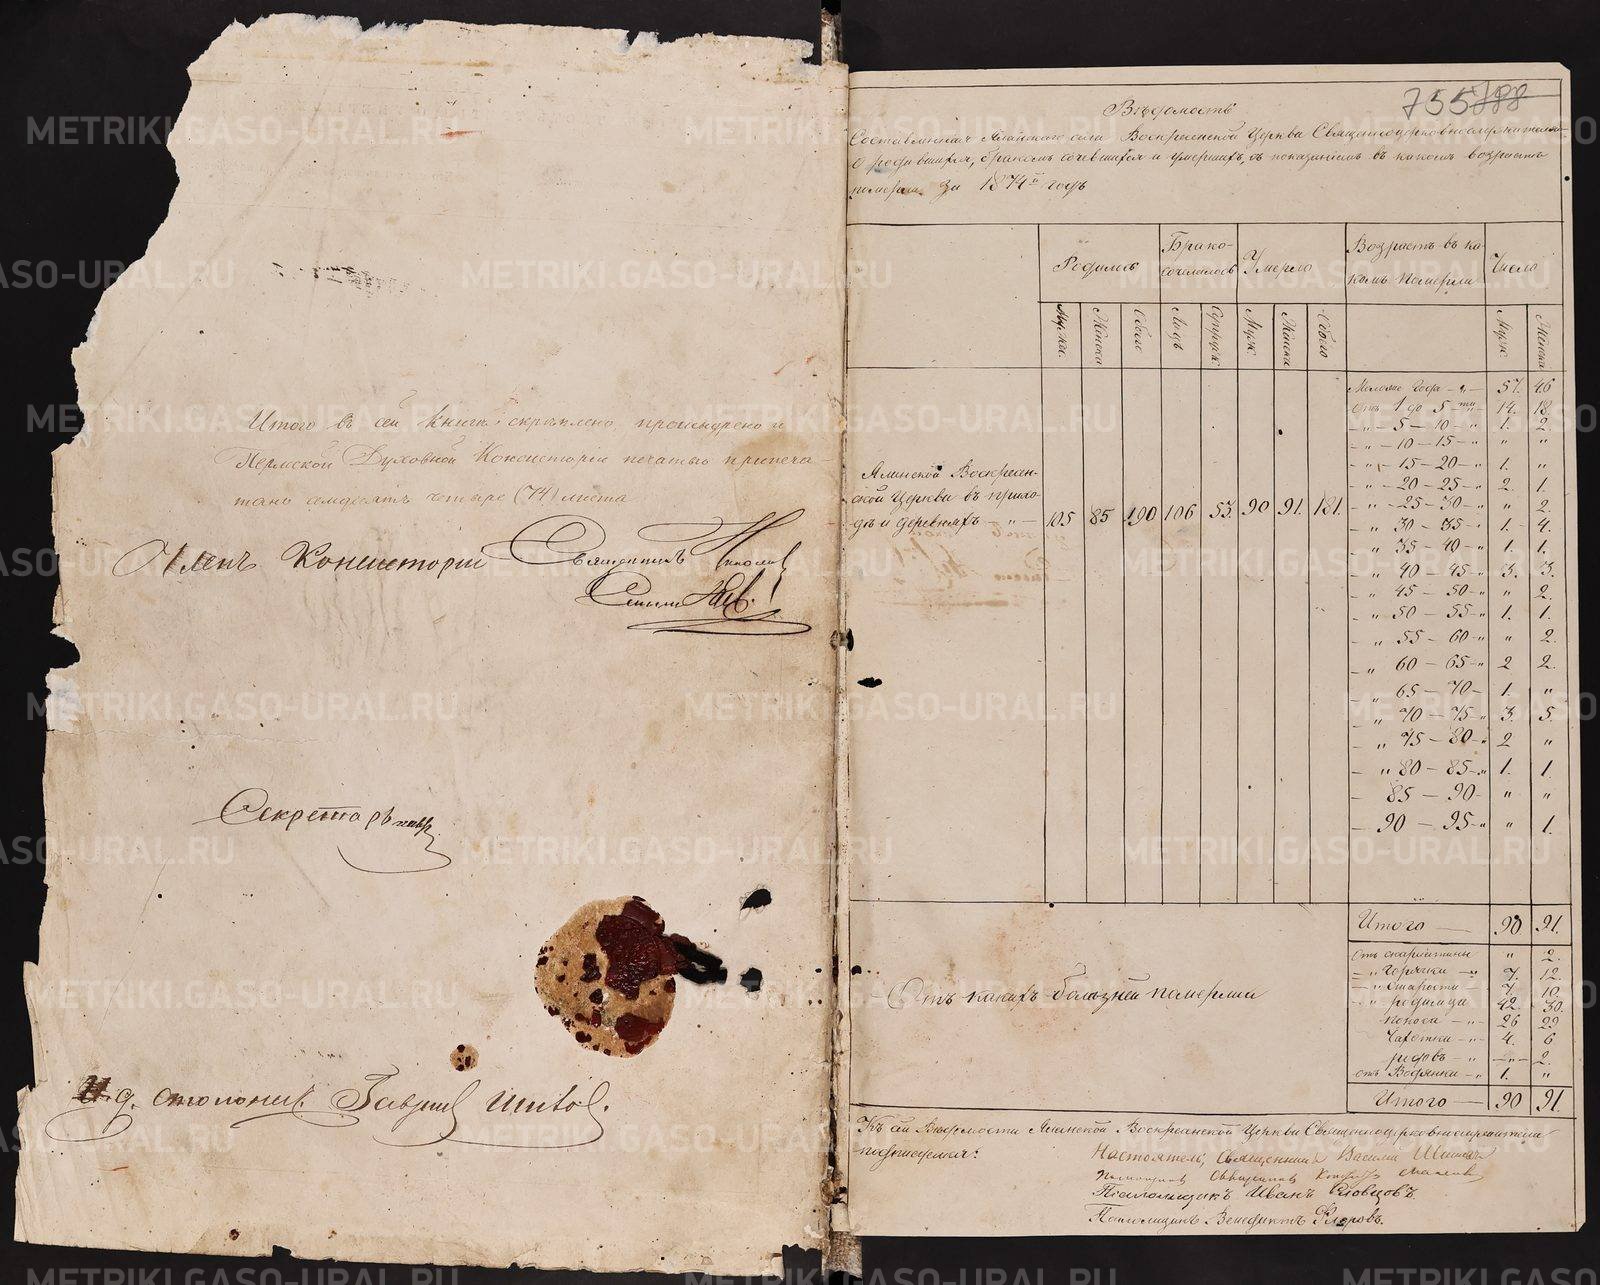 Итого въ сей книгѣ скрѣплено, пронумерено и
Пермской Духовной Консисторіи печатью припеча-
тано семдесятъ четыре (74) листа
Членъ Консисторіи Священникъ Николай
Секретарь
И. д. столонач. Гавріилъ
755 788
Вѣдомость
Составленная села Воскресенской Церкви Священноцерковнослужителями
О родившихся, бракомъ сочетавшихся и умершихъ, съ показаніемъ въ какомъ возрастѣ
померли за 1874й годъ
Родилось
Брако-
сочеталось
Умерло
Возрастъ въ ка-
комъ померли
Число
Мужск. Женска Обоего Лицъ Супруж. Муж. Женска Обоего Муж. Женска
Воскресен-
ской Церкви въ прихо-
дѣ и деревняхъ — „ — 105 85 190 106 53. 90 91. 181.
Моложе года — „ — 57. 46
Отъ 1 до 5ти „ 14. 12.
— „ — 5 — 10 — „ 1. 2.
— „ — 10 — 15 — „ „ „
— „ — 15 — 20 — „ 1. „
— „ — 20 — 25 — „ 2. 1.
— „ — 25 — 30 — „ „ 2.
— „ 30 — 35 — „ 1. 4.
— „ 35 — 40 — „ 1. 1.
— „ 40 — 45 — „ 3. 3.
— „ 45 — 50 — „ „ 2.
— „ 50 — 55 — „ 1. 1.
— „ 55 — 60 — „ „ 2.
— „ 60 — 65 — „ 2 2.
— „ 65 — 70 — 1. „
— „ 70 — 75 — „ 3. 5.
— „ 75 — 80 — „ 2 „
— „ 80 — 85 — „ 1. 1.
— 85 — 90 — „ „
— 90 — 95 — „ „ 1.
Итого — 90 91.
Отъ какихъ болѣзней померли
отъ скарлатины „ 2.
— „ Горячки — „ 7. 12.
— „ Старости — 7. 10.
— „ родимца 42. 30.
поноса — „ 26 29
Чахотки — „ 4. 6
родовъ — „ — „ — 2.
отъ Водянки — „ 1. „
Итого — 90 91.
Къ сей Вѣдомости Воскресенской Церкви Священноцерковнослужители
подписуемся: Настоятель, Священникъ Василій
Помощникъ Священникъ
Псаломщикъ Иванъ
Псаломщикъ Венедиктъ Флоровъ.
METRIKI.GASO-URAL.RU